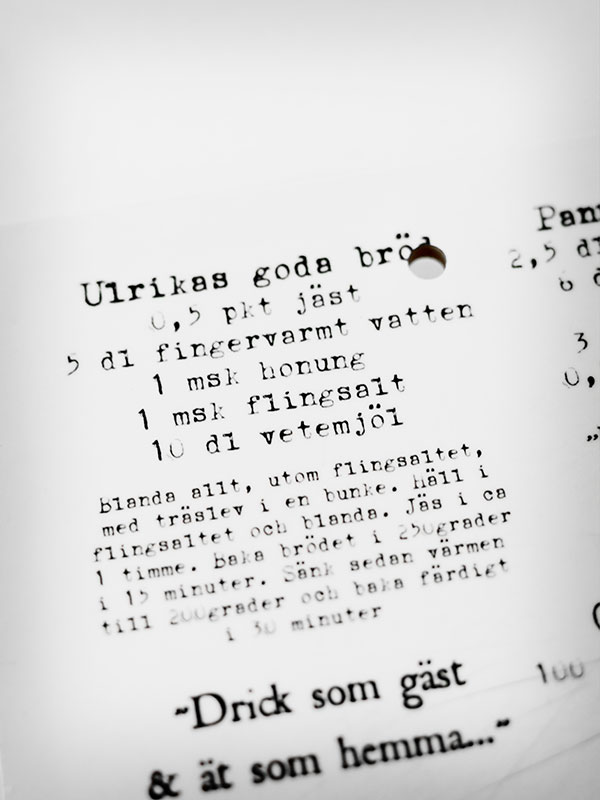 Ulrikas goda bröd
0,5 pkt jäst
5 dl fingervarmt vatten
1 msk honung
1 msk flingsalt
10 dl vetemjöl
Blanda allt, utom flingsaltet,
med träslev i en bunke. Häll i
flingsaltet och blanda. Jäs i ca
1 timme. Baka brödet i 250grader
i 15 minuter. Sänk sedan värmen
till 200grader och baka färdigt
i 30 minuter
~Drick som gäst
& ät som hemma...~
Pan
2,5 d
6 d
3
0,
"
100